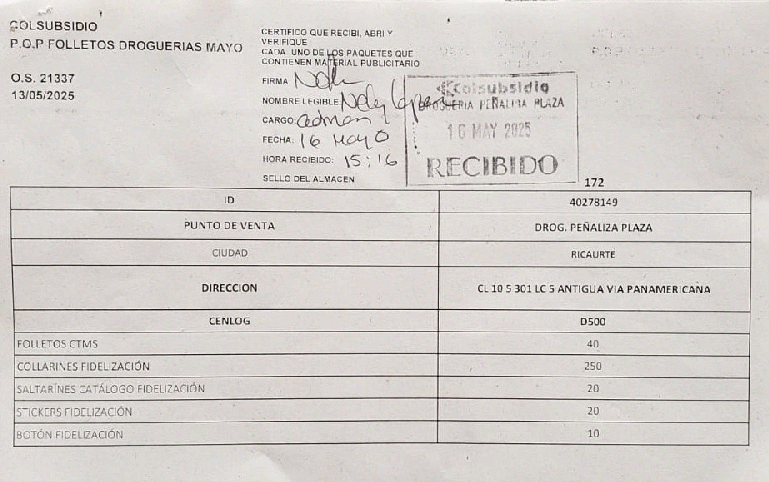 COLSUBSIDIO
P.O.P FOLLETOS DROGUERIAS MAYO
O.S. 21337
13/05/2025
CERTIFICO QUE RECIBI, ABRI Y
VERIFIQUE
CADA UNO DE LOS PAQUETES QUE
CONTIENEN MATERIAL PUBLICITARIO
FIRMA
NOMBRE LEGIBLE: Nely Lopez
CARGO: admon
FECHA: 16 Mayo
HORA RECIBIDO: 15:16
SELLO DEL ALMACEN
Colsubsidio
DROGUERIA PEÑALIZA PLAZA
16 MAY 2025
RECIBIDO
172
ID 40278149
PUNTO DE VENTA DROG. PEÑALIZA PLAZA
CIUDAD RICAURTE
DIRECCION CL 10 5 301 LC 5 ANTIGUA VIA PANAMERICANA
CENLOG D500
FOLLETOS CTMS 40
COLLARINES FIDELIZACIÓN 250
SALTARINES CATÁLOGO FIDELIZACIÓN 20
STICKERS FIDELIZACIÓN 20
BOTÓN FIDELIZACIÓN 10